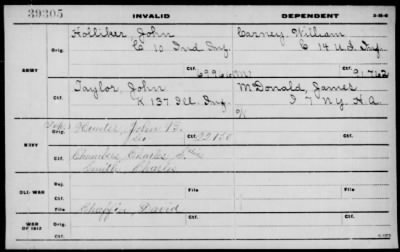 39305
INVALID DEPENDENT
3-25-6
ARMY
Orig. Holliker, John Carney, William
C 10 Ind Inf. C 14 U.S. Inf.
Ctf.
Ctf. Taylor, John McDonald, James
K 137 Ill. Inf. I 7 N.Y. H.A.
NAVY
Orig. Hunter, John
Ctf. 22150
Ctf. Chambers, Charles
Smith Charles
OLD WAR
Rej. File Rej. File
Ctf. Ctf.
WAR OF 1812
Orig. Chaffin, David Ctf. Orig. Ctf.